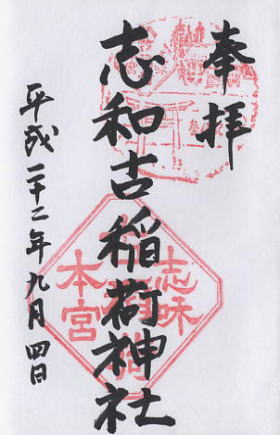 奉拝
志和古稲荷神社
平成二十二年九月四日
志味
本宮